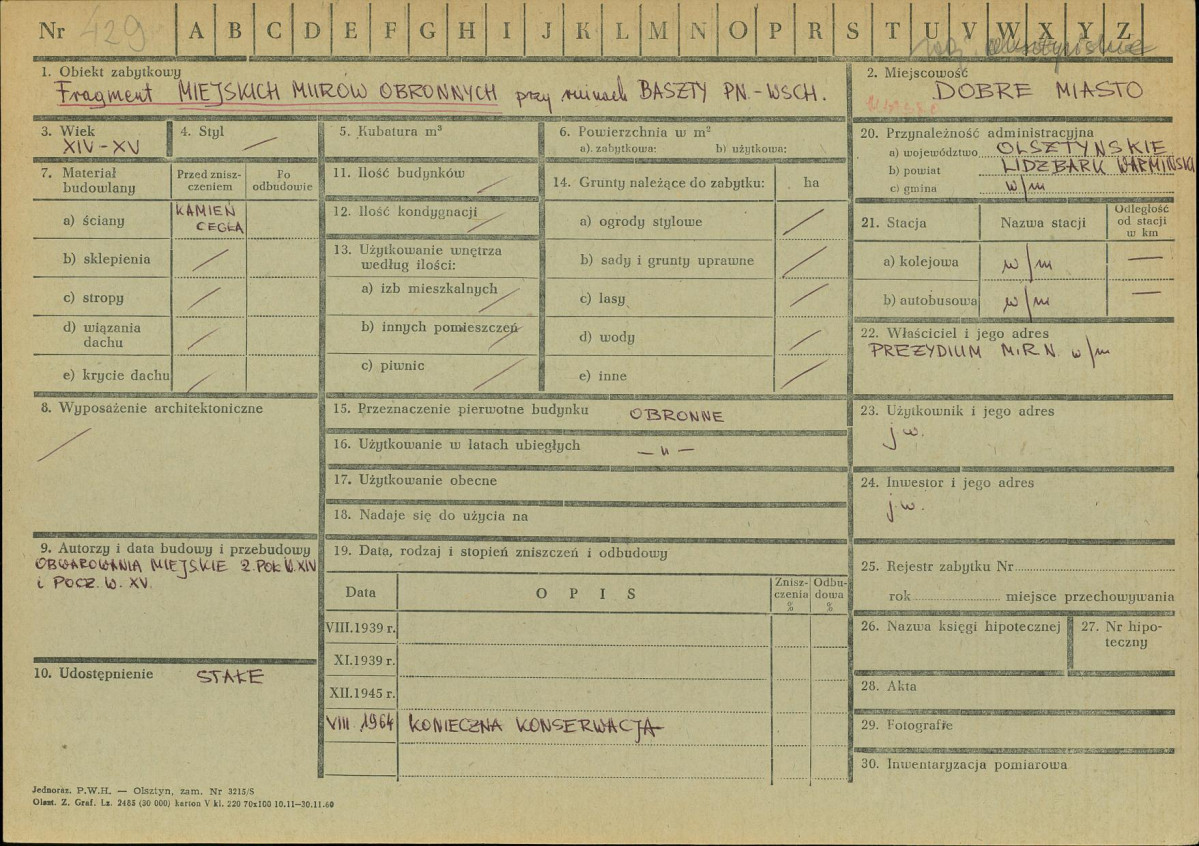 Nr 429 A B C D E F G H I J K L M N O P R S T U V W X Y Z
woj. olsztyńskie
1. Obiekt zabytkowy
Fragment MIEJSKICH MURÓW OBRONNYCH przy ruinach BASZTY PN.-WSCH.
2. Miejscowość
DOBRE MIASTO
3. Wiek
XIV-XV
4. Styl
5. Kubatura m³
6. Powierzchnia w m²
a). zabytkowa: b) użytkowa:
7. Materiał budowlany
Przed znisz-
czeniem
Po
odbudowie
a) ściany
KAMIEŃ
CEGŁA
b) sklepienia
c) stropy
d) wiązania
dachu
e) krycie dachu
8. Wyposażenie architektoniczne
9. Autorzy i data budowy i przebudowy
OBWAROWANIA MIEJSKIE 2. POŁ. W. XIV
i POCZ. W. XV.
10. Udostępnienie STAŁE
11. Ilość budynków
12. Ilość kondygnacji
13. Użytkowanie wnętrza
według ilości:
a) izb mieszkalnych
b) innych pomieszczeń
c) piwnic
14. Grunty należące do zabytku: ha
a) ogrody stylowe
b) sady i grunty uprawne
c) lasy
d) wody
e) inne
15. Przeznaczenie pierwotne budynku OBRONNE
16. Użytkowanie w latach ubiegłych — „ —
17. Użytkowanie obecne
18. Nadaje się do użycia na
19. Data, rodzaj i stopień zniszczeń i odbudowy
Data O P I S
Znisz-
czenia
%
Odbu-
dowa
%
VIII.1939 r.
XI.1939 r.
XII.1945 r.
VIII 1964 KONIECZNA KONSERWACJA
20. Przynależność administracyjna
a) województwo OLSZTYŃSKIE
b) powiat LIDZBARK WARMIŃSKI
c) gmina w/m
21. Stacja Nazwa stacji
Odległość
od stacji
w km
a) kolejowa w/m —
b) autobusowa w/m —
22. Właściciel i jego adres
PREZYDIUM M.R.N. w/m
23. Użytkownik i jego adres
j.w.
24. Inwestor i jego adres
j.w.
25. Rejestr zabytku Nr
rok miejsce przechowywania
26. Nazwa księgi hipotecznej
27. Nr hipo-
teczny
28. Akta
29. Fotografie
30. Inwentaryzacja pomiarowa
Jednoraz. P.W.H. — Olsztyn, zam. Nr 3215/S
Olszt. Z. Graf. Lz. 2485 (30 000) karton V kl. 220 70x100 10.11—30.11.60